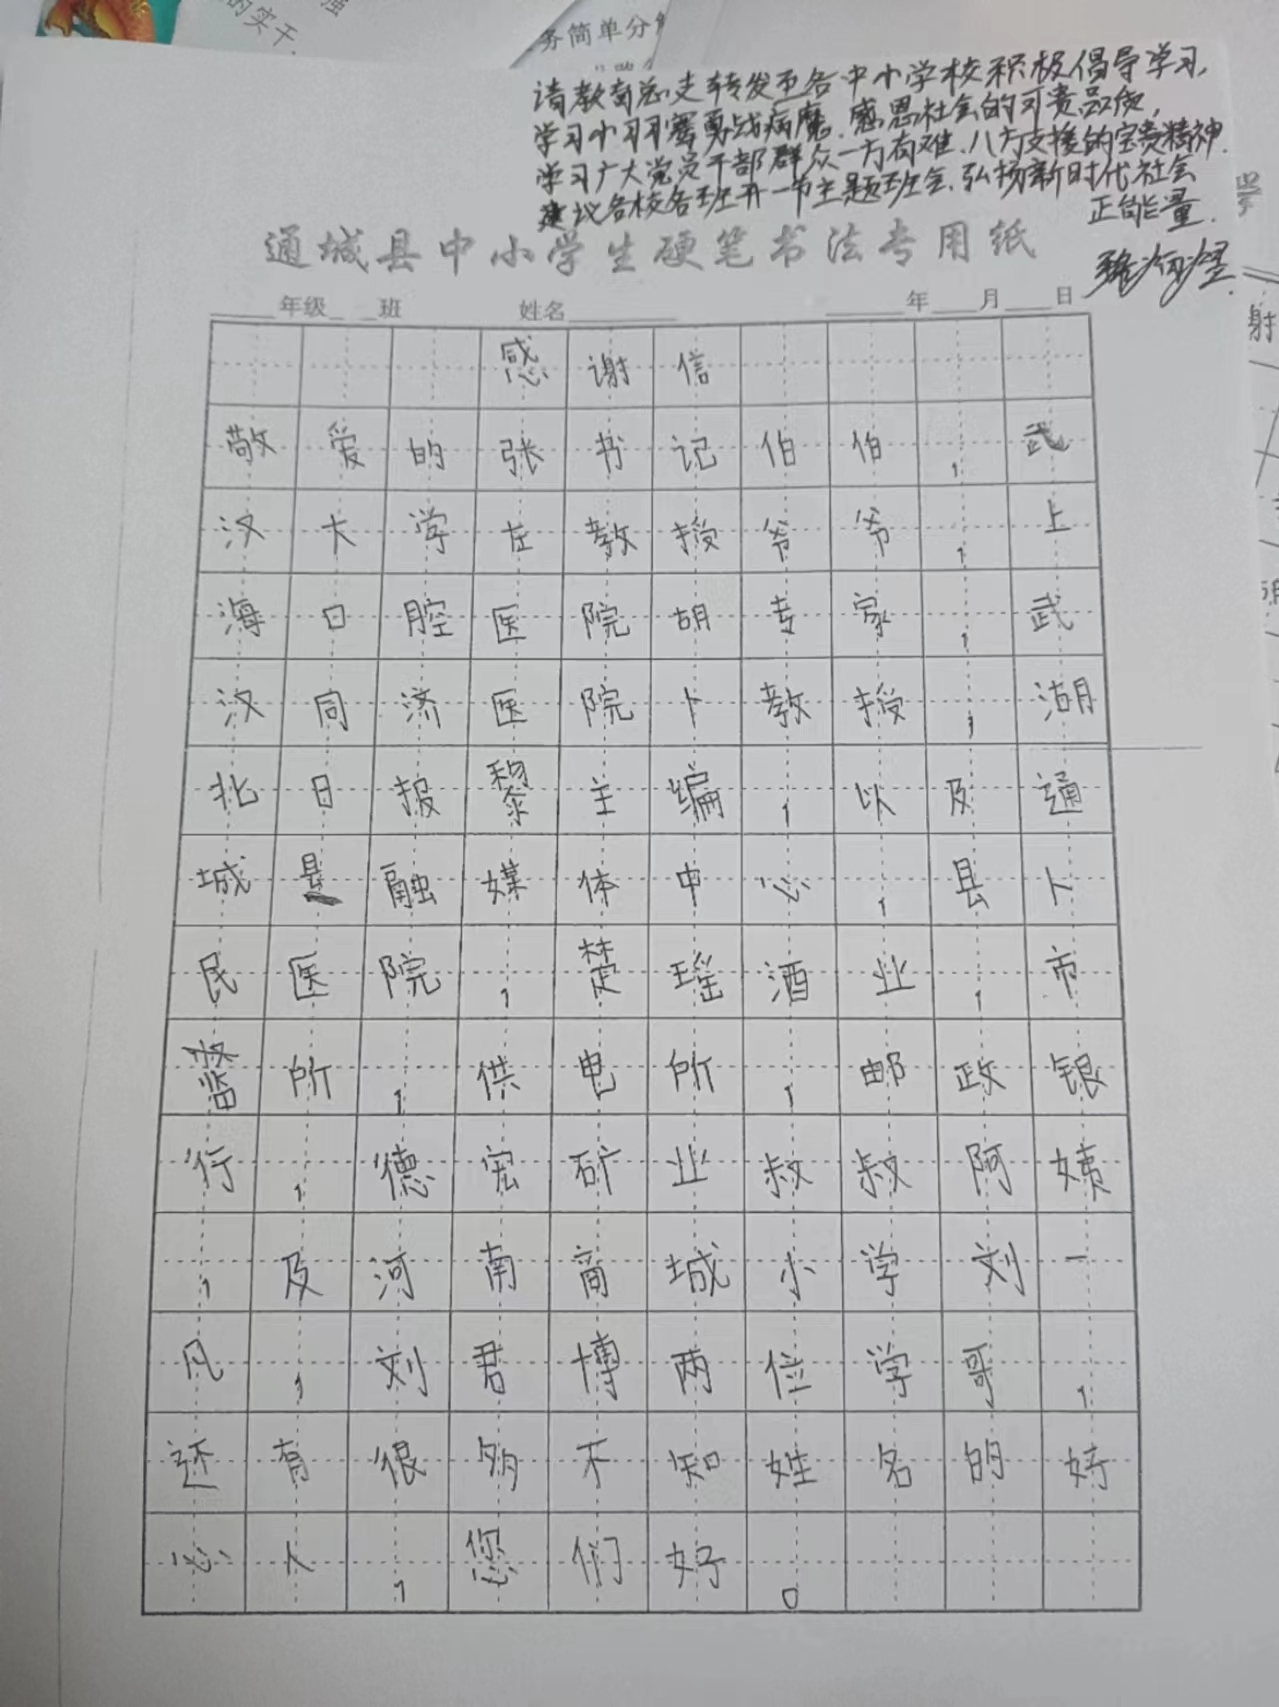 的实干
强
务简单分
请教育总支转发至各中小学校积极倡导学习,
学习小习习赛勇战病魔、感恩社会的可贵品质,
学习广大党员干部群众一方有难、八方支援的宝贵精神.
建议各校各班开一节主题班会,弘扬新时代社会
正能量.
通城县中小学生硬笔书法专用纸
年级 班 姓名 年 月 日
感谢信
敬爱的张书记伯伯,武
汉大学左教授爷爷,上
海口腔医院胡专家,武
汉同济医院卜教授,湖
北日报黎主编,以及通
城县融媒体中心,县人
民医院,楚瑶酒业,市
监所,供电所,邮政银
行,德宏矿业叔叔阿姨
,及河南商城小学刘一
凡,刘君博两位学哥,
还有很多不知姓名的好
心人,您们好。
射